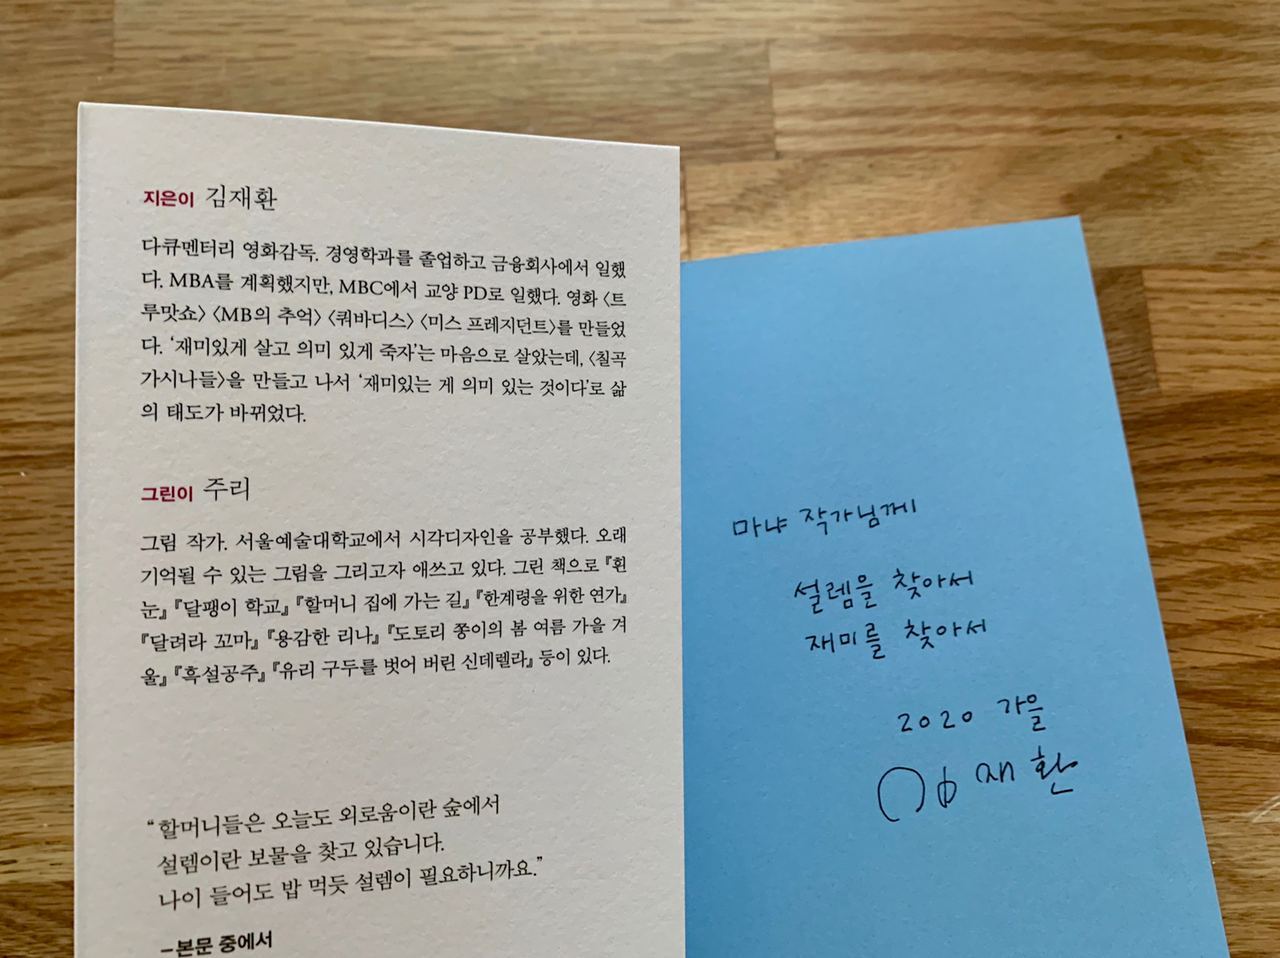 지은이 김재환
다큐멘터리 영화감독. 경영학과를 졸업하고 금융회사에서 일했
다. MBA를 계획했지만, MBC에서 교양 PD로 일했다. 영화 〈트
루맛쇼〉 〈MB의 추억〉 〈쿼바디스〉 〈미스 프레지던트〉를 만들었
다. ‘재미있게 살고 의미 있게 죽자’는 마음으로 살았는데, 〈칠곡
가시나들〉을 만들고 나서 ‘재미있는 게 의미 있는 것이다’로 삶
의 태도가 바뀌었다.
그린이 주리
그림 작가. 서울예술대학교에서 시각디자인을 공부했다. 오래
기억될 수 있는 그림을 그리고자 애쓰고 있다. 그린 책으로 『흰
눈』 『달팽이 학교』 『할머니 집에 가는 길』 『한계령을 위한 연가』
『달려라 꼬마』 『용감한 리나』 『도토리 쫑이의 봄 여름 가을 겨
울』 『흑설공주』 『유리 구두를 벗어 버린 신데렐라』 등이 있다.
“할머니들은 오늘도 외로움이란 숲에서
설렘이란 보물을 찾고 있습니다.
나이 들어도 밥 먹듯 설렘이 필요하니까요.”
–본문 중에서
마냐 작가님께
설렘을 찾아서
재미를 찾아서
2020 가을
김재환